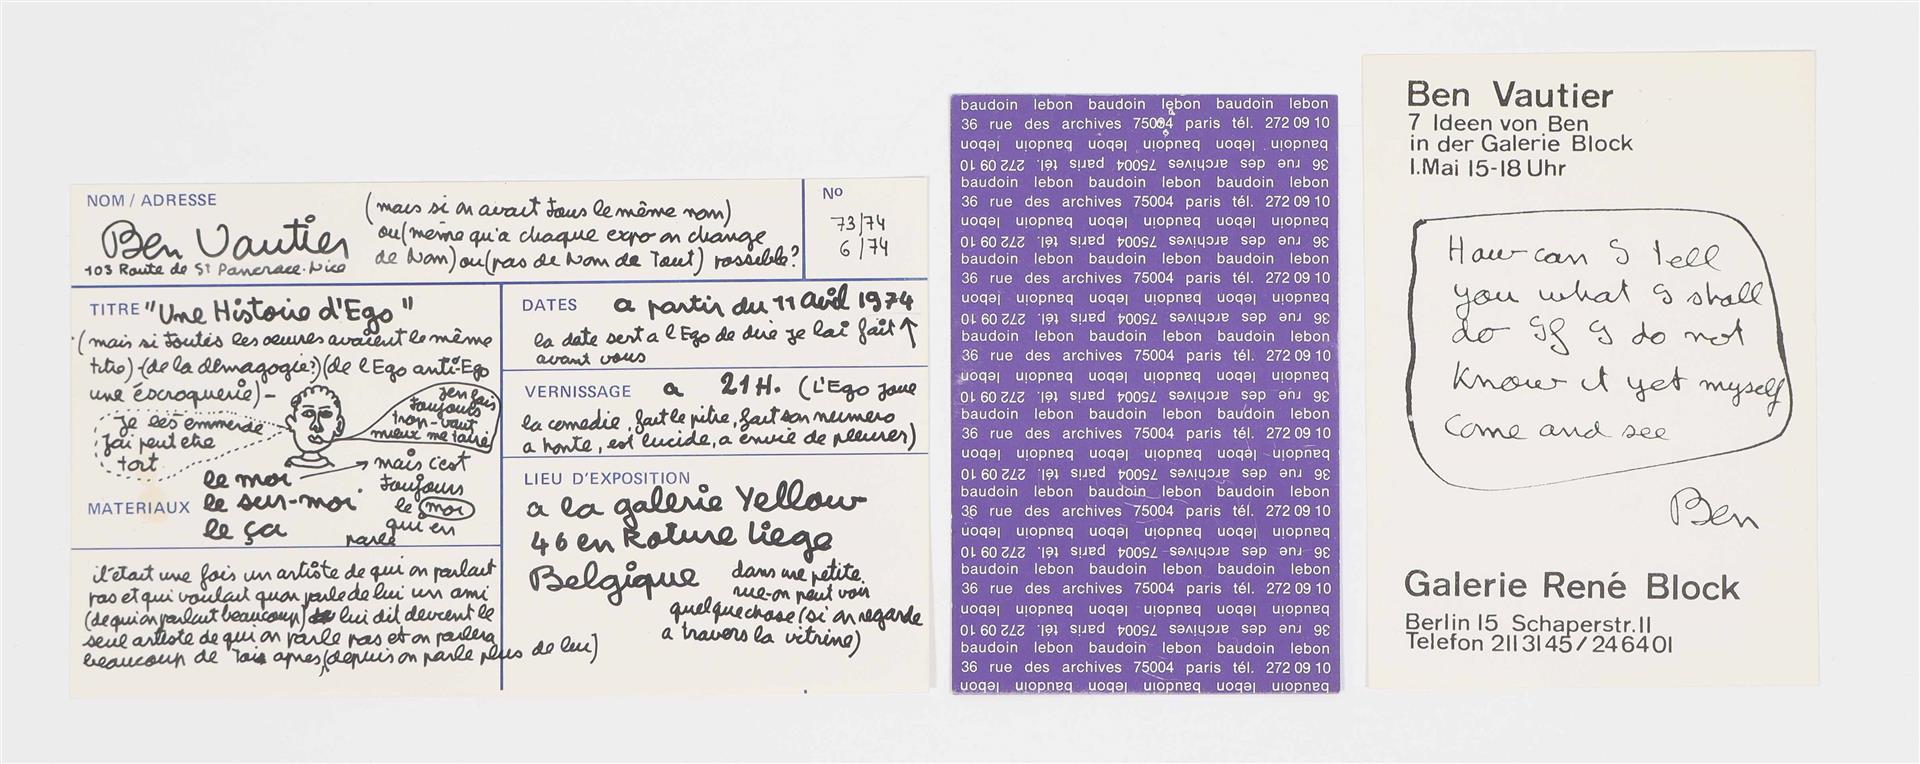 NOM / ADRESSE
Ben Vautier
103 Route de St Pancrace. Nice
(mais si on avait tous le même nom)
ou (même qu'a chaque expo on change
de Nom) ou (pas de Nom de Tout) possible?
No
73/74
6/74
TITRE "Une Histoire d'Ego"
(mais si toutes les oeuvres avaient le même
titre) - (de la démagogie?) (de l'Ego anti-Ego
une escroquerie) -
je les emmerde
j'ai peut etre
tort
j'en fais
toujours
trop - vaut
mieux me taire
MATERIAUX
le moi
le sur-moi
le ça
mais c'est
toujours
le moi
qui en
parle
il etait une fois un artiste de qui on parlait
pas et qui voulait quon parle de lui un ami
(de qui on parlait beaucoup) lui dit devient le
seul artiste de qui on parle pas et on parlera
beaucoup de Toi apres (depuis on parle plus de lui)
DATES a partir du 11 avril 1974
la date sert a l'Ego de dire je l'ai fait
avant vous
VERNISSAGE a 21H. (L'Ego joue
la comedie, fait le pitre, fait son numero
a honte, est lucide, a envie de pleurer)
LIEU D'EXPOSITION
a la galerie Yellow
46 en Roture Liege
Belgique
dans une petite
rue - on peut voir
quelque chose (si on regarde
a travers la vitrine)
baudoin lebon baudoin lebon baudoin lebon
36 rue des archives 75004 paris tél. 272 09 10
baudoin lebon baudoin lebon baudoin lebon
36 rue des archives 75004 paris tél. 272 09 10
baudoin lebon baudoin lebon baudoin lebon
36 rue des archives 75004 paris tél. 272 09 10
baudoin lebon baudoin lebon baudoin lebon
36 rue des archives 75004 paris tél. 272 09 10
baudoin lebon baudoin lebon baudoin lebon
36 rue des archives 75004 paris tél. 272 09 10
baudoin lebon baudoin lebon baudoin lebon
36 rue des archives 75004 paris tél. 272 09 10
baudoin lebon baudoin lebon baudoin lebon
36 rue des archives 75004 paris tél. 272 09 10
baudoin lebon baudoin lebon baudoin lebon
36 rue des archives 75004 paris tél. 272 09 10
baudoin lebon baudoin lebon baudoin lebon
36 rue des archives 75004 paris tél. 272 09 10
baudoin lebon baudoin lebon baudoin lebon
36 rue des archives 75004 paris tél. 272 09 10
baudoin lebon baudoin lebon baudoin lebon
36 rue des archives 75004 paris tél. 272 09 10
baudoin lebon baudoin lebon baudoin lebon
36 rue des archives 75004 paris tél. 272 09 10
baudoin lebon baudoin lebon baudoin lebon
36 rue des archives 75004 paris tél. 272 09 10
baudoin lebon baudoin lebon baudoin lebon
36 rue des archives 75004 paris tél. 272 09 10
baudoin lebon baudoin lebon baudoin lebon
36 rue des archives 75004 paris tél. 272 09 10
baudoin lebon baudoin lebon baudoin lebon
Ben Vautier
7 Ideen von Ben
in der Galerie Block
1. Mai 15-18 Uhr
How can I tell
you what I shall
do If I do not
Know it yet myself
Come and see
Ben
Galerie René Block
Berlin 15 Schaperstr. 11
Telefon 2113145/246401